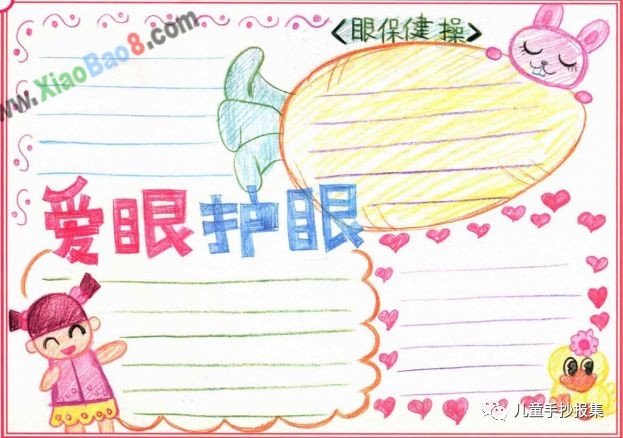 <眼保健操>
www.XiaoBao8.com
爱眼护眼
儿童手抄报集